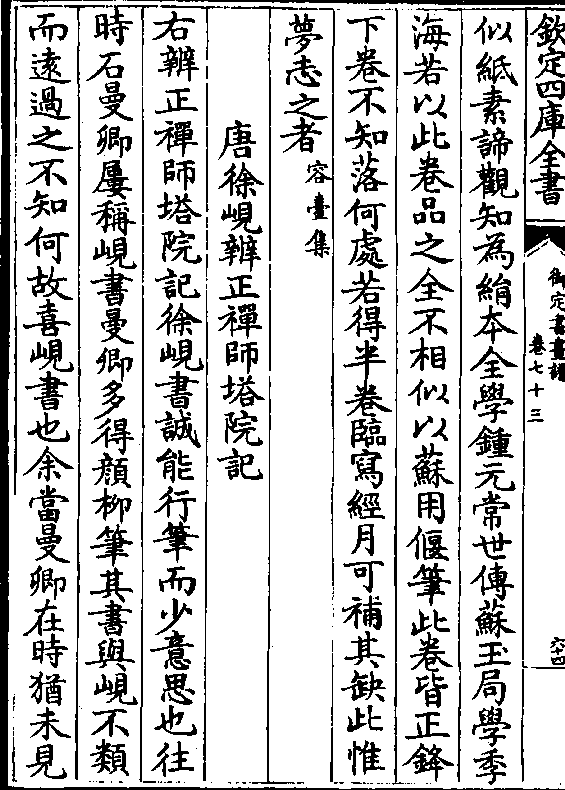 欽定四庫全書
御定書畫譜
卷七十三
六十四
似紙素諦觀知為絹本全學鍾元常世傳蘇玉局學季
海若以此卷品之全不相似以蘇用偃筆此卷皆正鋒
下卷不知落何處若得半卷臨寫經月可補其缺此惟
夢志之者 容臺集
唐徐峴辨正禪師塔院記
右辨正禪師塔院記徐峴書誠能行筆而少意思也往
時石曼卿屢稱峴書曼卿多得顔柳筆其書與峴不類
而遠過之不知何故喜峴書也余當曼卿在時猶未見